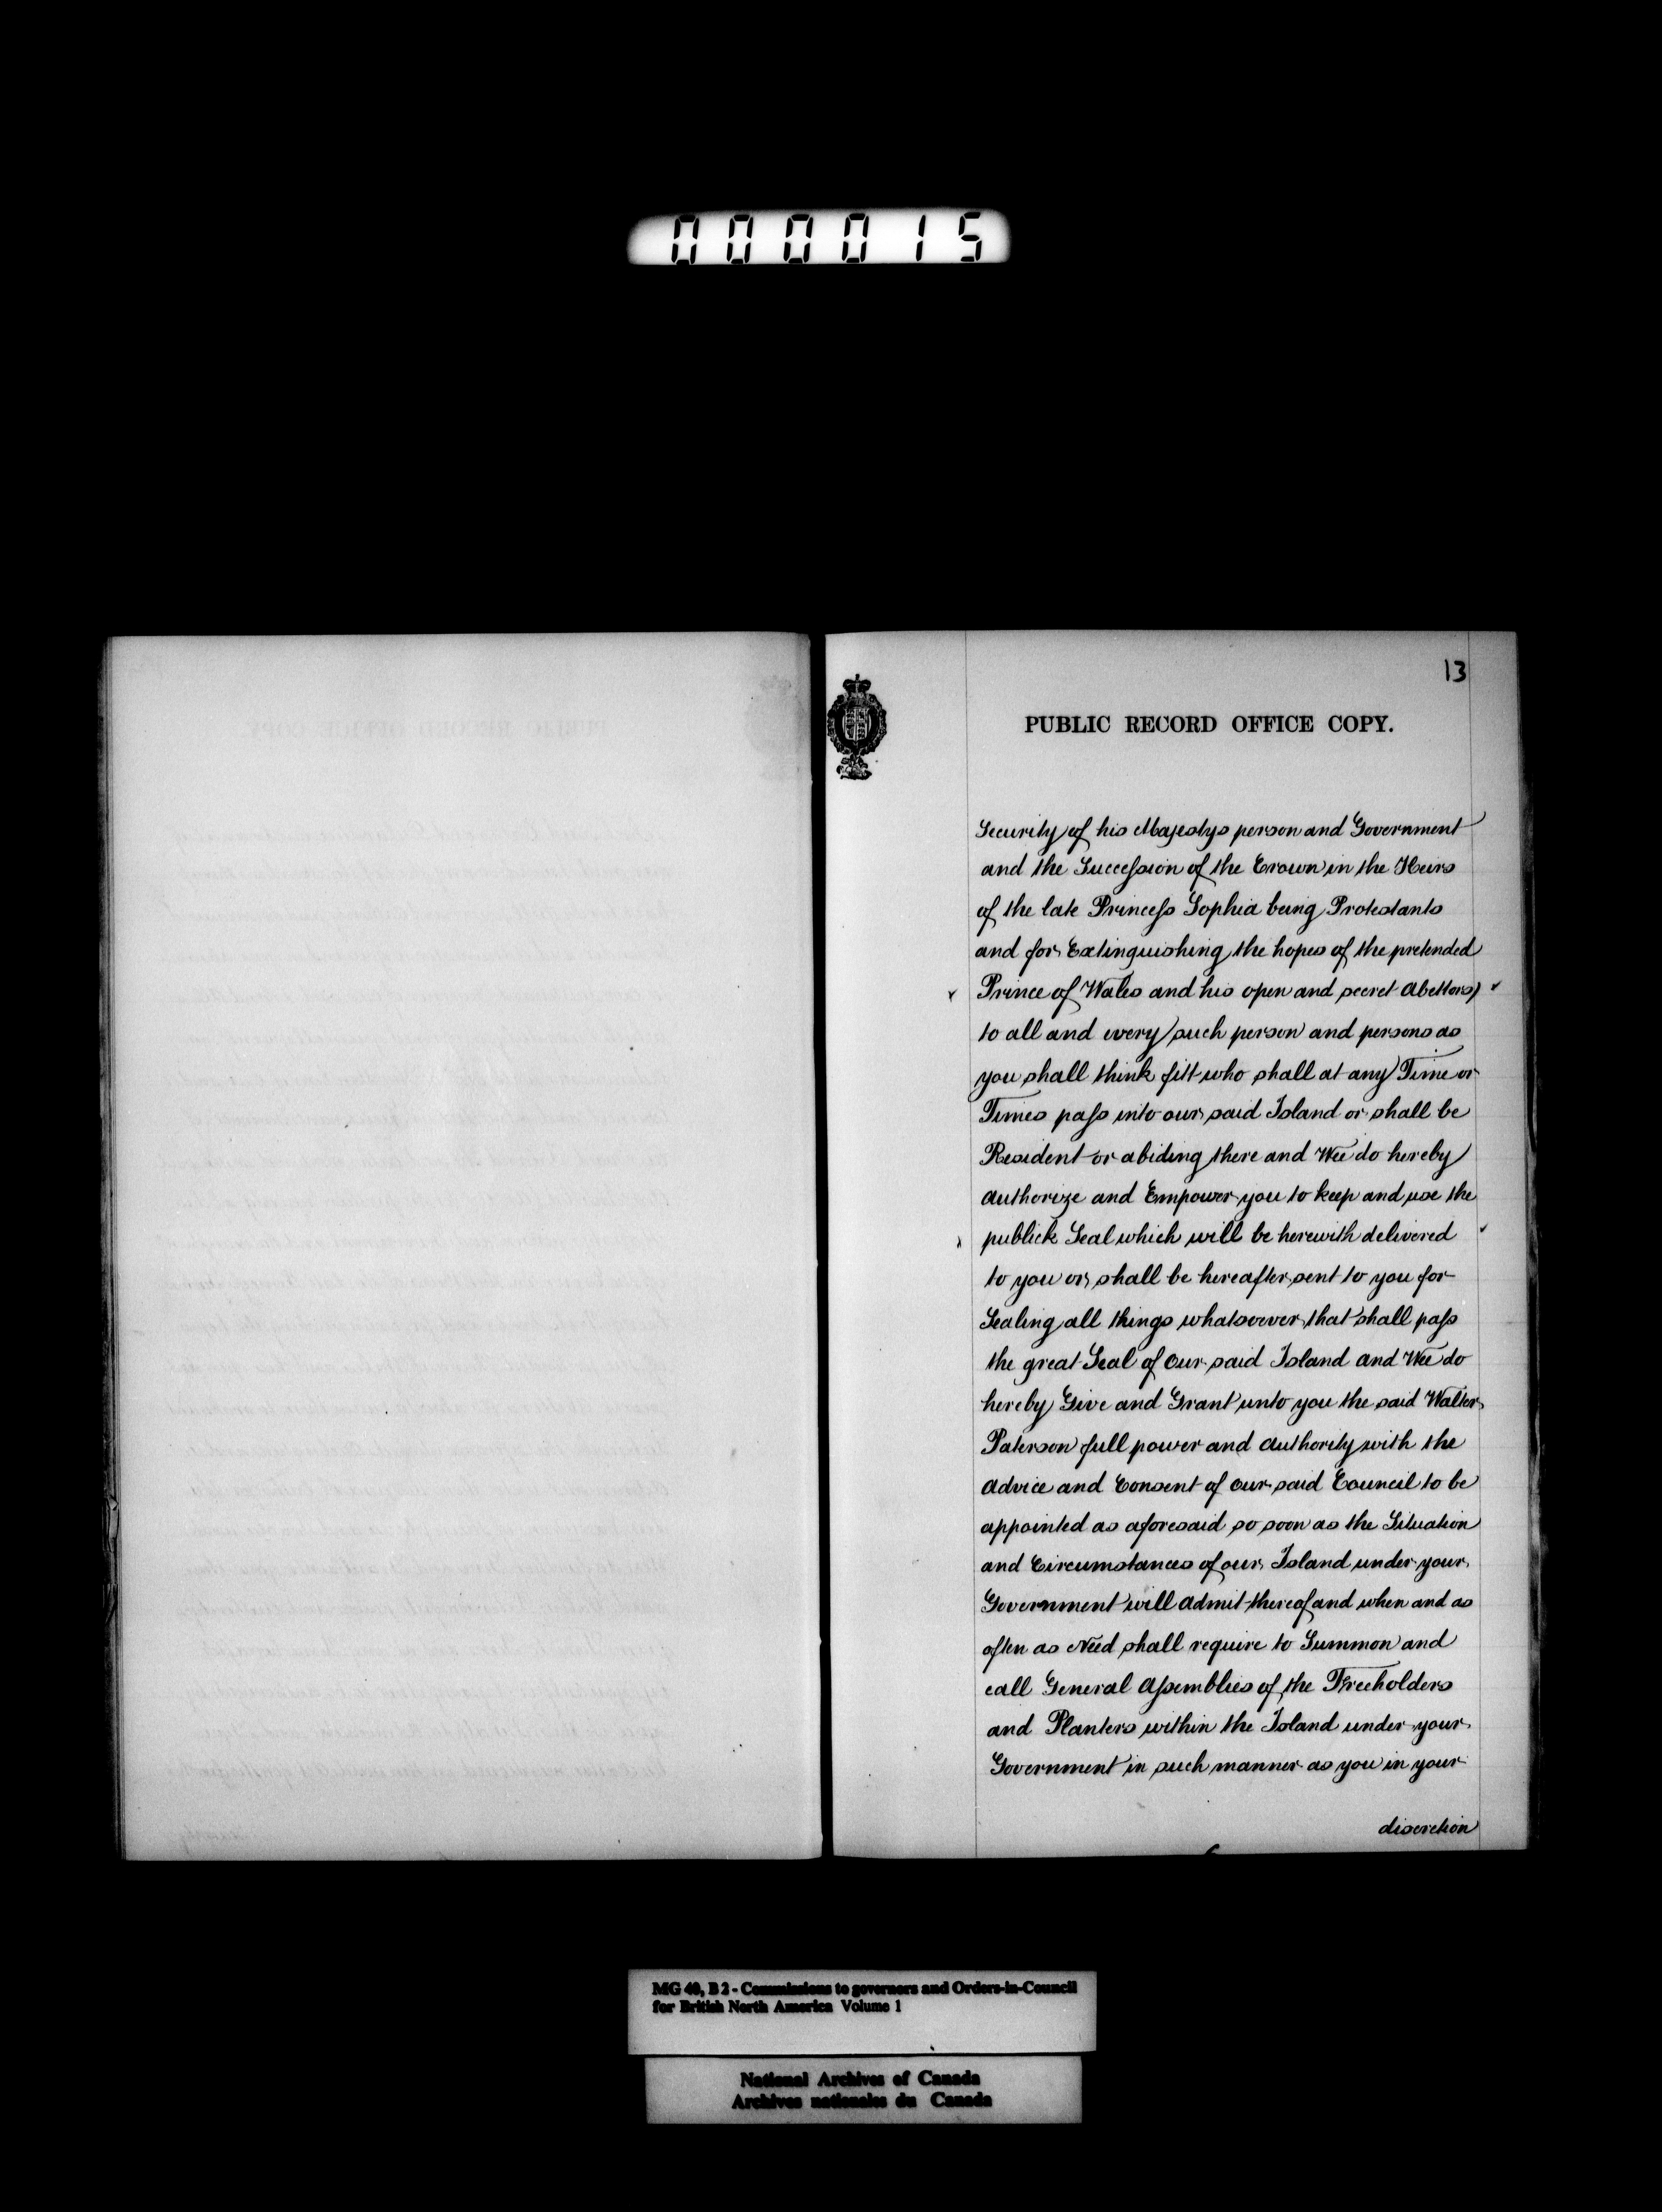 000015
13
PUBLIC RECORD OFFICE COPY.
Security of his Majestys person and Government
and the Succession of the Crown in the Heirs
of the late Princess Sophia being Protestants
and for Extinguishing the hopes of the pretended
Prince of Wales and his open and secret Abettors)
to all and every such person and persons as
you shall think fitt who shall at any Time or
Times pass into our said Island or shall be
Resident or abiding there and Wee do hereby
Authorize and Empower you to keep and use the
publick Seal which will be herewith delivered
to you or shall be hereafter sent to you for
Sealing all things whatsoever that shall pass
the great Seal of Our said Island and Wee do
hereby Give and Grant unto you the said Walter
Paterson full power and Authority with the
Advice and Consent of our said Council to be
appointed as aforesaid so soon as the Situation
and Circumstances of our Island under your
Government will Admit thereof and when and as
often as Need shall require to Summon and
call General Assemblies of the Freeholders
and Planters within the Island under your
Government in such manner as you in your
discretion
MG 40, B 2 - Commissions to governors and Orders-in-Council
for British North America Volume 1
National Archives of Canada
Archives nationales du Canada